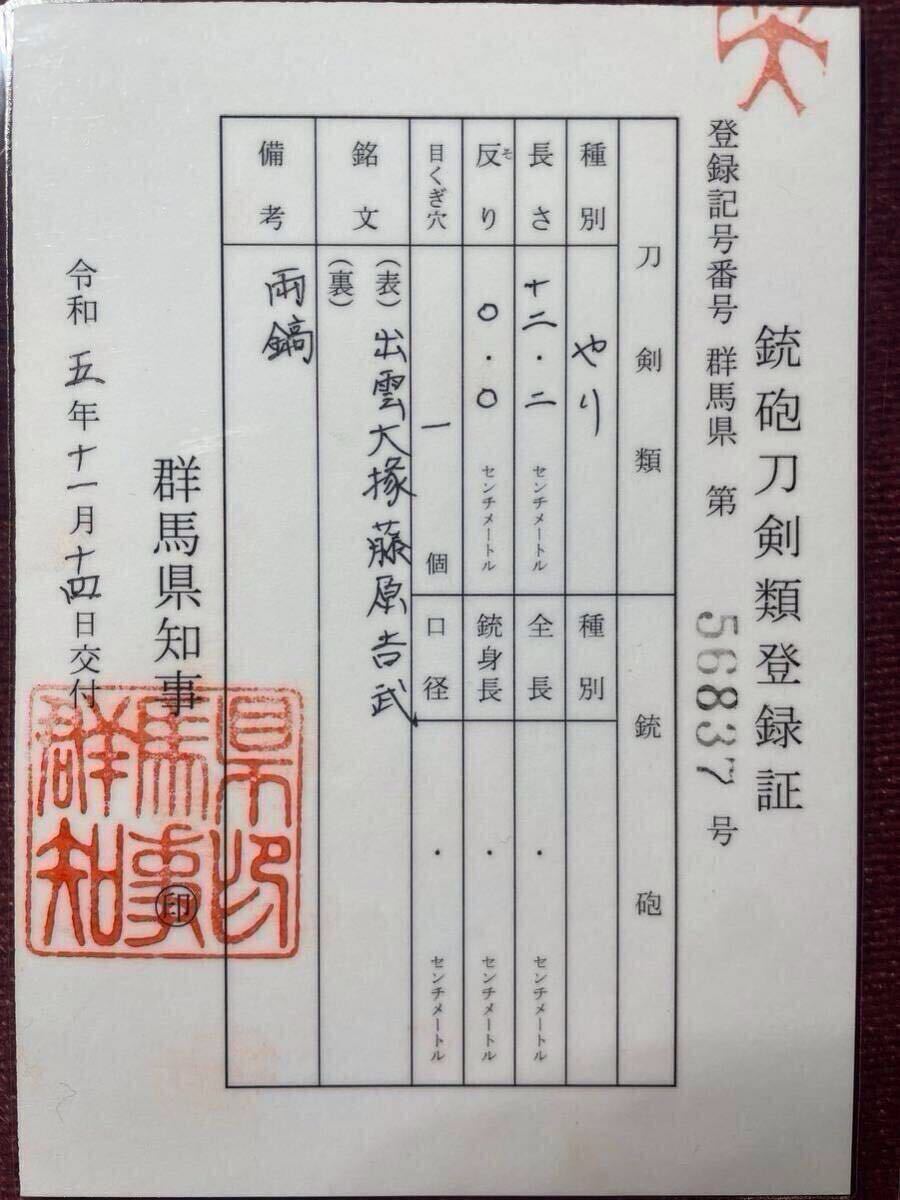 銃砲刀剣類登録証
登録記号番号 群馬県 第 56837 号
刀剣類
銃砲
種別 やり
種別
長さ 十二・二 センチメートル
全長 ・ センチメートル
反り 〇・〇 センチメートル
そ
銃身長 ・ センチメートル
目くぎ穴 一 個
口径 ・ センチメートル
銘文
(表) 出雲大掾藤原吉武
(裏)
備考 両鎬
群馬県知事 印
令和 五年十一月十四日交付
群馬県知事印